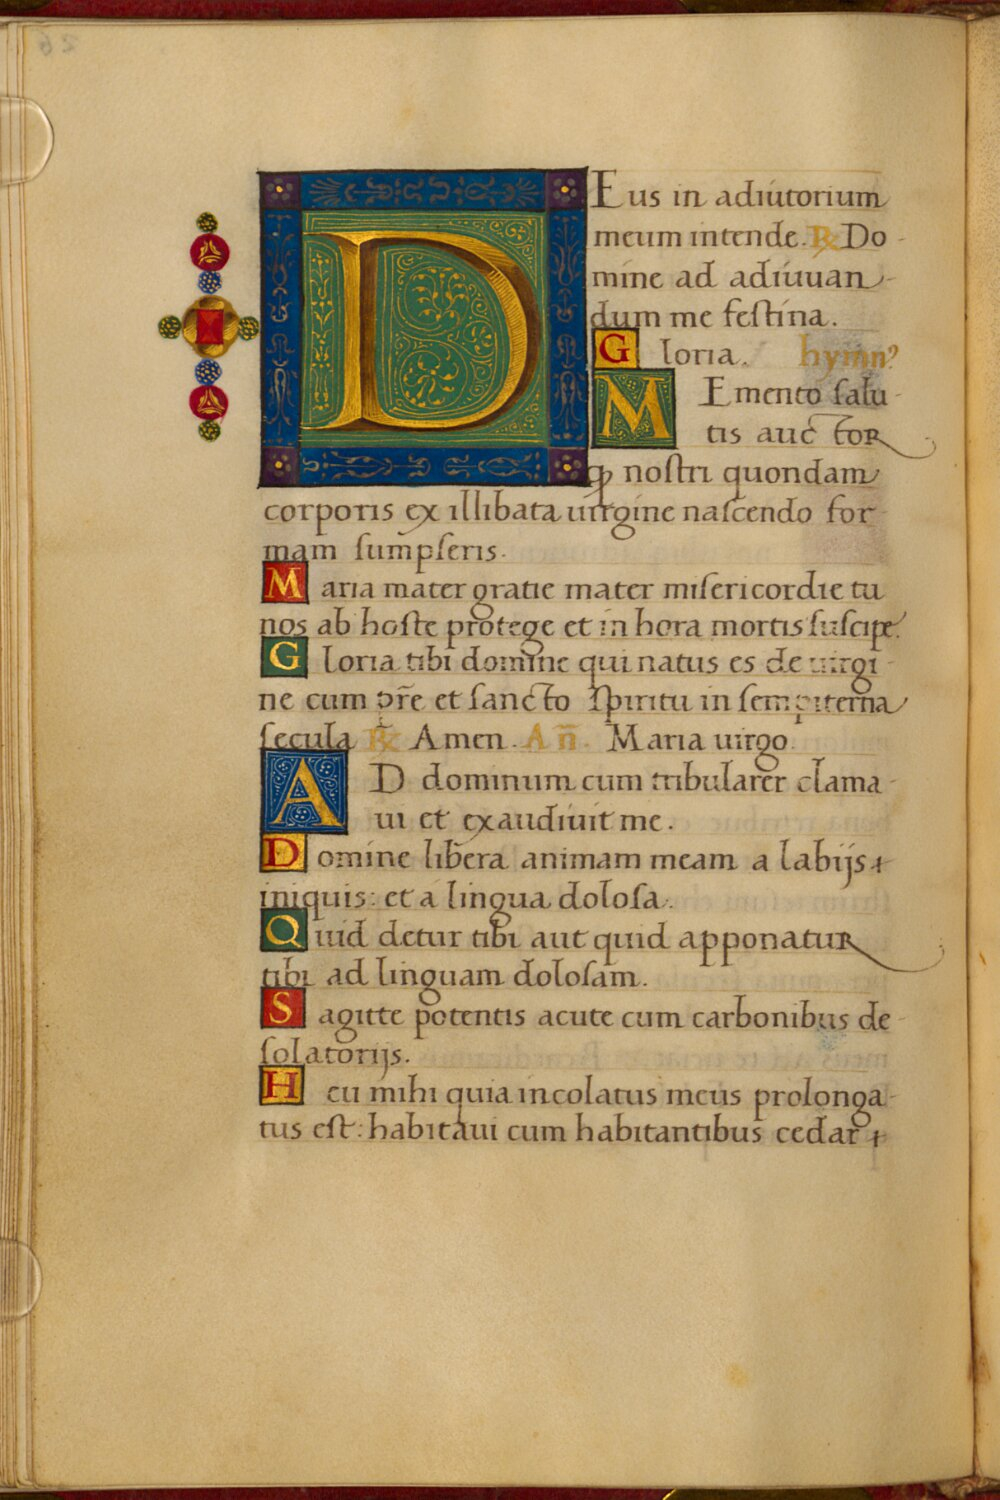 DEus in adiutorium
meum intende. ℟ Do-
mine ad adiuuan-
dum me festina.
Gloria. hymnꝰ
MEmento salu-
tis auctor
ꝙ nostri quondam
corporis ex illibata uirgine nascendo for-
mam sumpseris.
Maria mater gratie mater misericordie tu
nos ab hoste protege et in hora mortis suscipe.
Gloria tibi domine qui natus es de uirgi-
ne cum pr̄e et sancto spiritu in sempiterna
secula ℟ Amen. An̄. Maria uirgo.
AD dominum cum tribularer clama-
ui et exaudiuit me.
Domine libera animam meam a labijs
iniquis: et a lingua dolosa.
Quid detur tibi aut quid apponatur
tibi ad linguam dolosam.
Sagitte potentis acute cum carbonibus de-
solatorijs.
Heu mihi quia incolatus meus prolonga-
tus est: habitaui cum habitantibus cedar